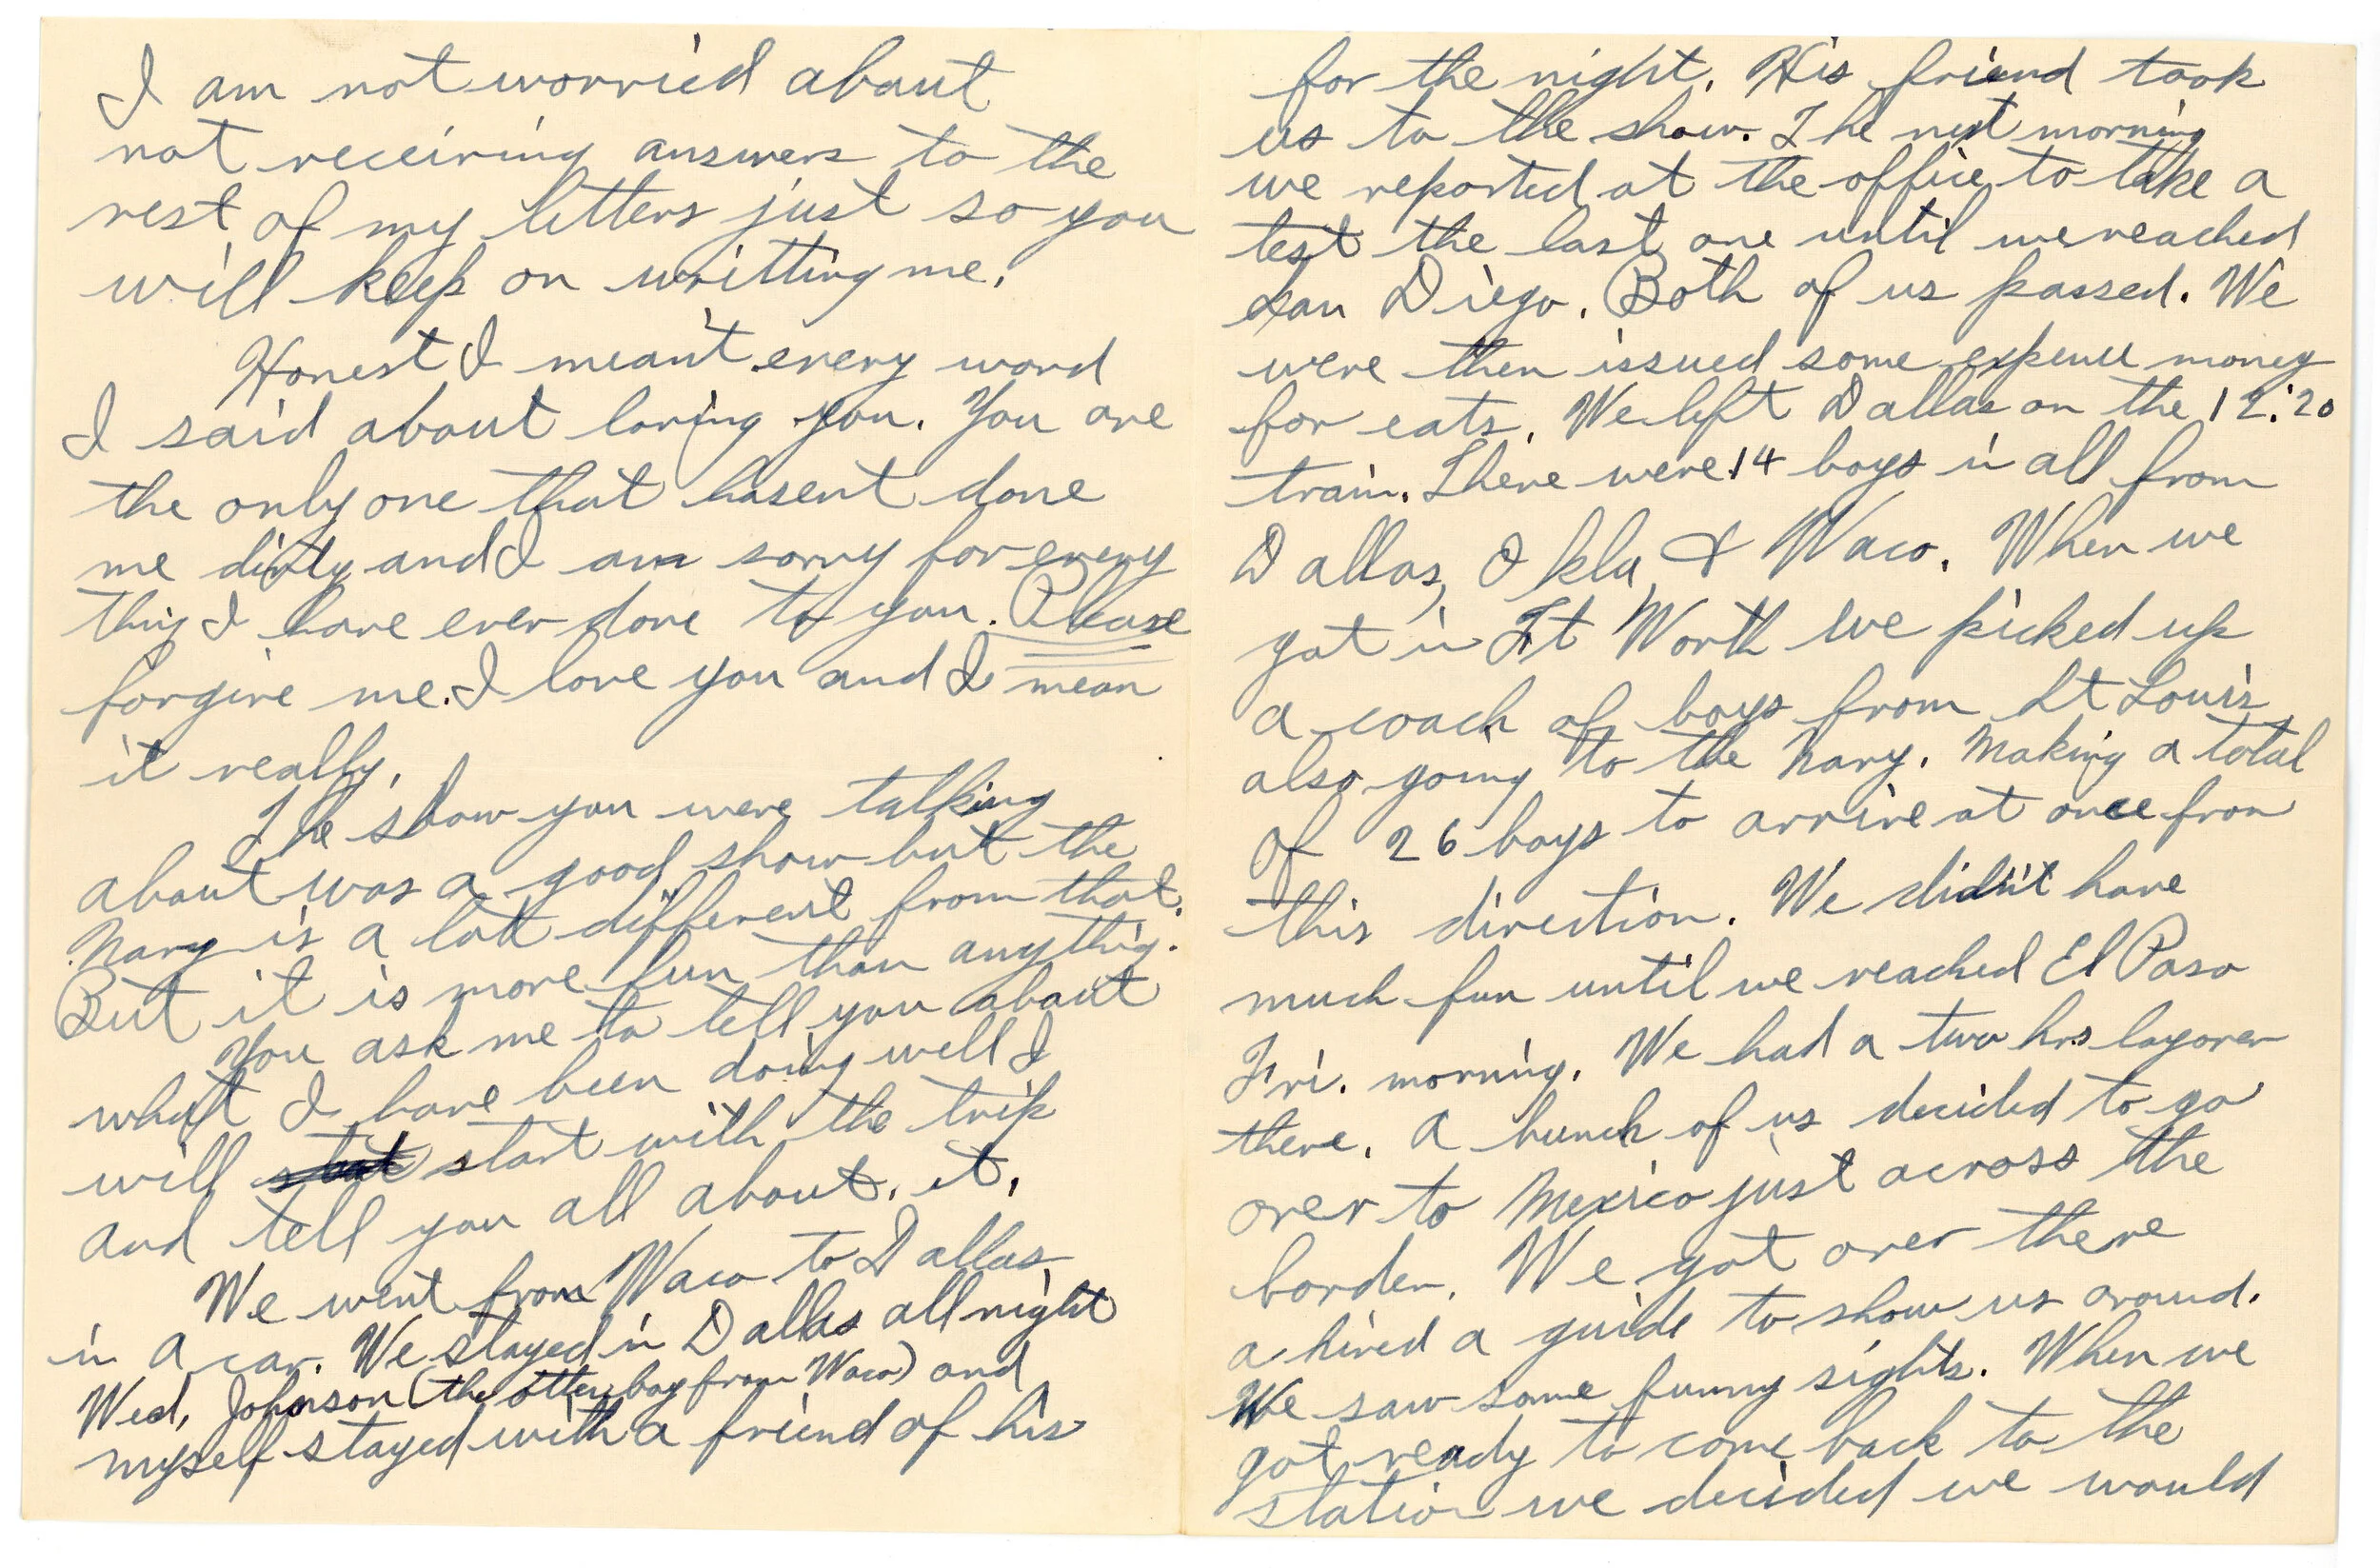 I am not worried about
not receiving answers to the
rest of my letters just so you
will keep on writting me.
Honest I mean't every word
I said about loving you. You are
the only one that hasent done
me dirty and I am sorry for every
thing I have ever done to you. Please
forgive me. I love you and I mean
it really.
The show you were talking
about was a good show but the
Navy is a lot different from that.
But it is more fun than anything.
You ask me to tell you about
what I have been doing well I
will start with the trip
and tell you all about it.
We went from Waco to Dallas
in a car. We stayed in Dallas all night
Wed, Johnson (the other boy from Waco) and
myself stayed with a friend of his
for the night. His friend took
us to the show. The next morning
we reported at the office to take a
test the last one until we reached
San Diego. Both of us passed. We
were then issued some expense money
for eats. We left Dallas on the 12:20
train. There were 14 boys in all from
Dallas, Okla & Waco. When we
got in Ft Worth we picked up
a coach of boys from St Louis
also going to the Navy. Making a total
of 26 boys to arrive at once from
this direction. We didn't have
much fun until we reached El Paso
Fri. morning. We had a two hrs layover
there. A bunch of us decided to go
over to Mexico just across the
border. We got over there
a hired a guide to show us around.
We saw some funny sights. When we
got ready to come back to the
station we decided we would